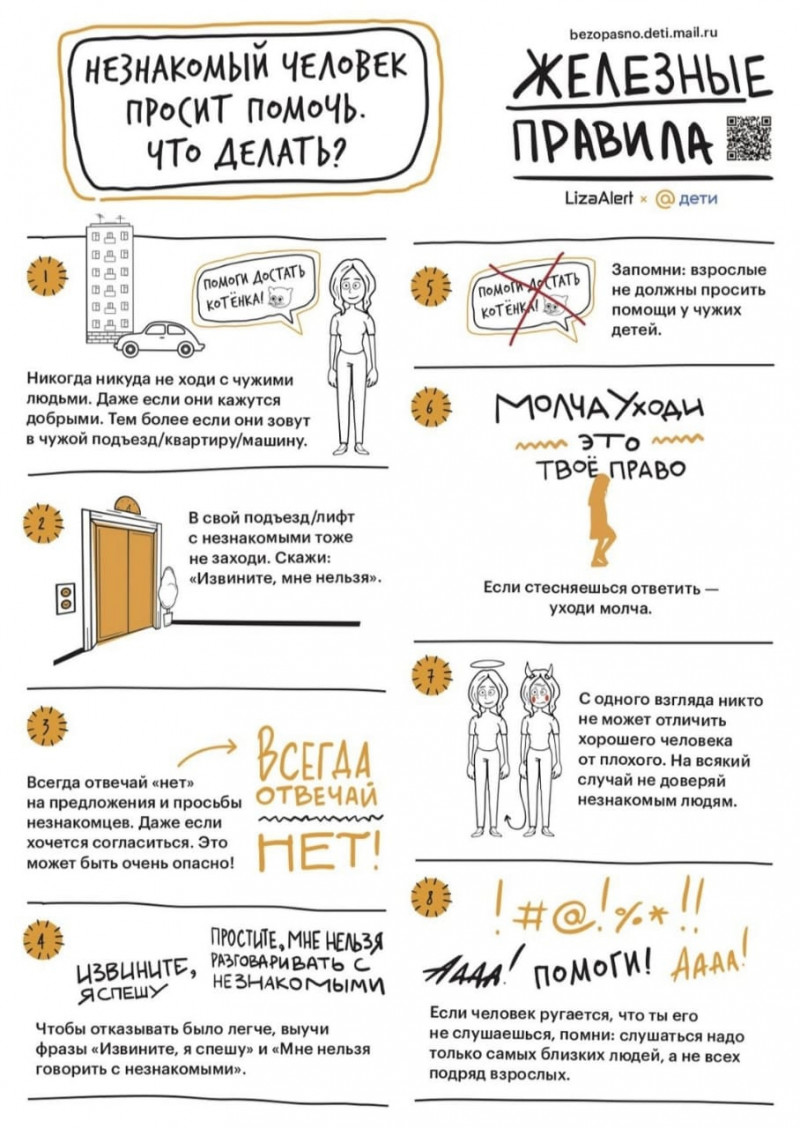 НЕЗНАКОМЫЙ ЧЕЛОВЕК
ПРОСИТ ПОМОЧЬ.
ЧТО ДЕЛАТЬ?
bezopasno.deti.mail.ru
ЖЕЛЕЗНЫЕ
ПРАВИЛА
LizaAlert × @ дети
1
ПОМОГИ ДОСТАТЬ
КОТЁНКА!
Никогда никуда не ходи с чужими
людьми. Даже если они кажутся
добрыми. Тем более если они зовут
в чужой подъезд/квартиру/машину.
2
1
В свой подъезд/лифт
с незнакомыми тоже
не заходи. Скажи:
«Извините, мне нельзя».
3
Всегда отвечай «нет»
на предложения и просьбы
незнакомцев. Даже если
хочется согласиться. Это
может быть очень опасно!
ВСЕГДА
ОТВЕЧАЙ
НЕТ!
4
ИЗВИНИТЕ,
Я СПЕШУ
ПРОСТИТЕ, МНЕ НЕЛЬЗЯ
РАЗГОВАРИВАТЬ С
НЕЗНАКОМЫМИ
Чтобы отказывать было легче, выучи
фразы «Извините, я спешу» и «Мне нельзя
говорить с незнакомыми».
5
ПОМОГИ ДОСТАТЬ
КОТЁНКА!
Запомни: взрослые
не должны просить
помощи у чужих
детей.
6
МОЛЧА УХОДИ
ЭТО
ТВОЁ ПРАВО
Если стесняешься ответить —
уходи молча.
7
С одного взгляда никто
не может отличить
хорошего человека
от плохого. На всякий
случай не доверяй
незнакомым людям.
8
!#@!%*!!
АААА! ПОМОГИ! АААА!
Если человек ругается, что ты его
не слушаешься, помни: слушаться надо
только самых близких людей, а не всех
подряд взрослых.